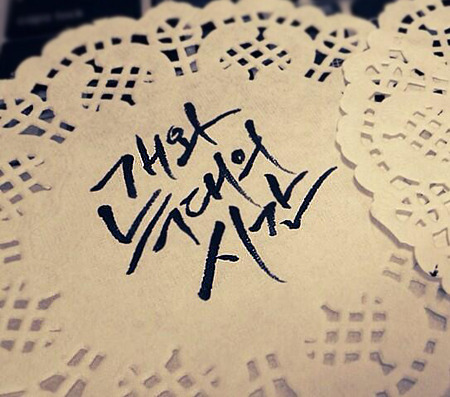 개와
늑대의
시간